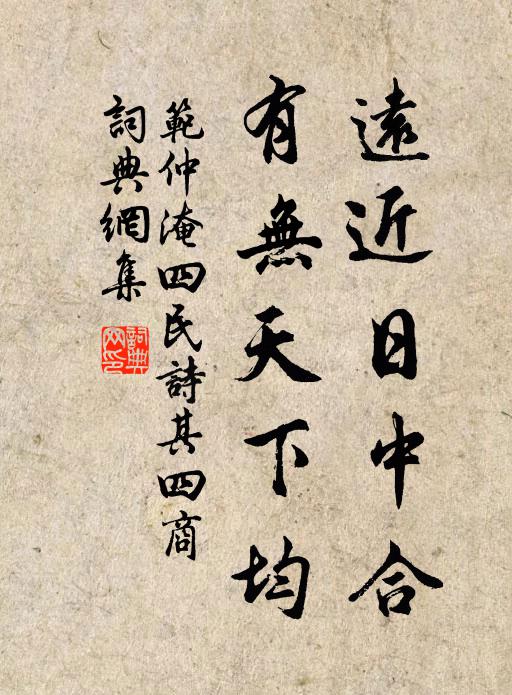 遠近日中合
有無天下均
範仲淹四民詩其四商
詞典網集
詞典網印